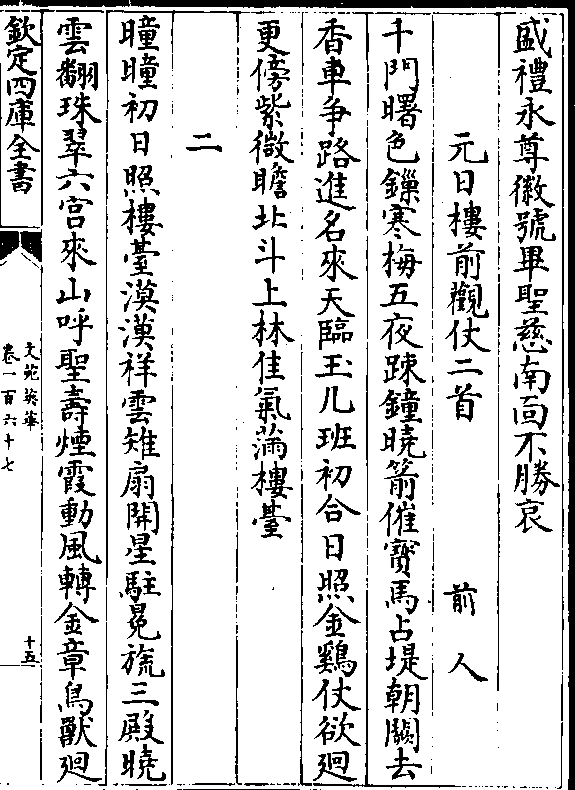 盛禮永尊徽號畢聖慈南面不勝哀
元日樓前觀仗二首　前人
千門曙色鏁寒梅五夜踈鐘曉箭催寳馬占堤朝闕去
香車争路進名來天臨玉几班初合日照金鷄仗欲廻
更傍紫微瞻北斗上林佳氣滿樓臺
二
曈曈初日照樓臺漠漠祥雲雉扇開星駐冕旒三殿曉
雲翻珠翠六宫來山呼聖壽煙霞動風轉金章鳥獸廻
欽定四庫全書
文苑英華
卷一百六十七
十五